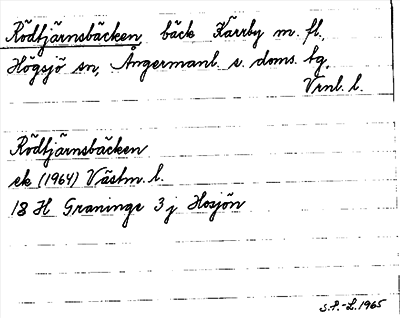 Rödtjärnsbäcken, bäck Kärrby m. fl.,
Högsjö sn, Ångermanl. s. doms. tg,
Vrnl. l.
Rödtjärnsbäcken
ek (1964) Västm. l.
18 H Graninge 3 j Hosjön
S.P.-L. 1965